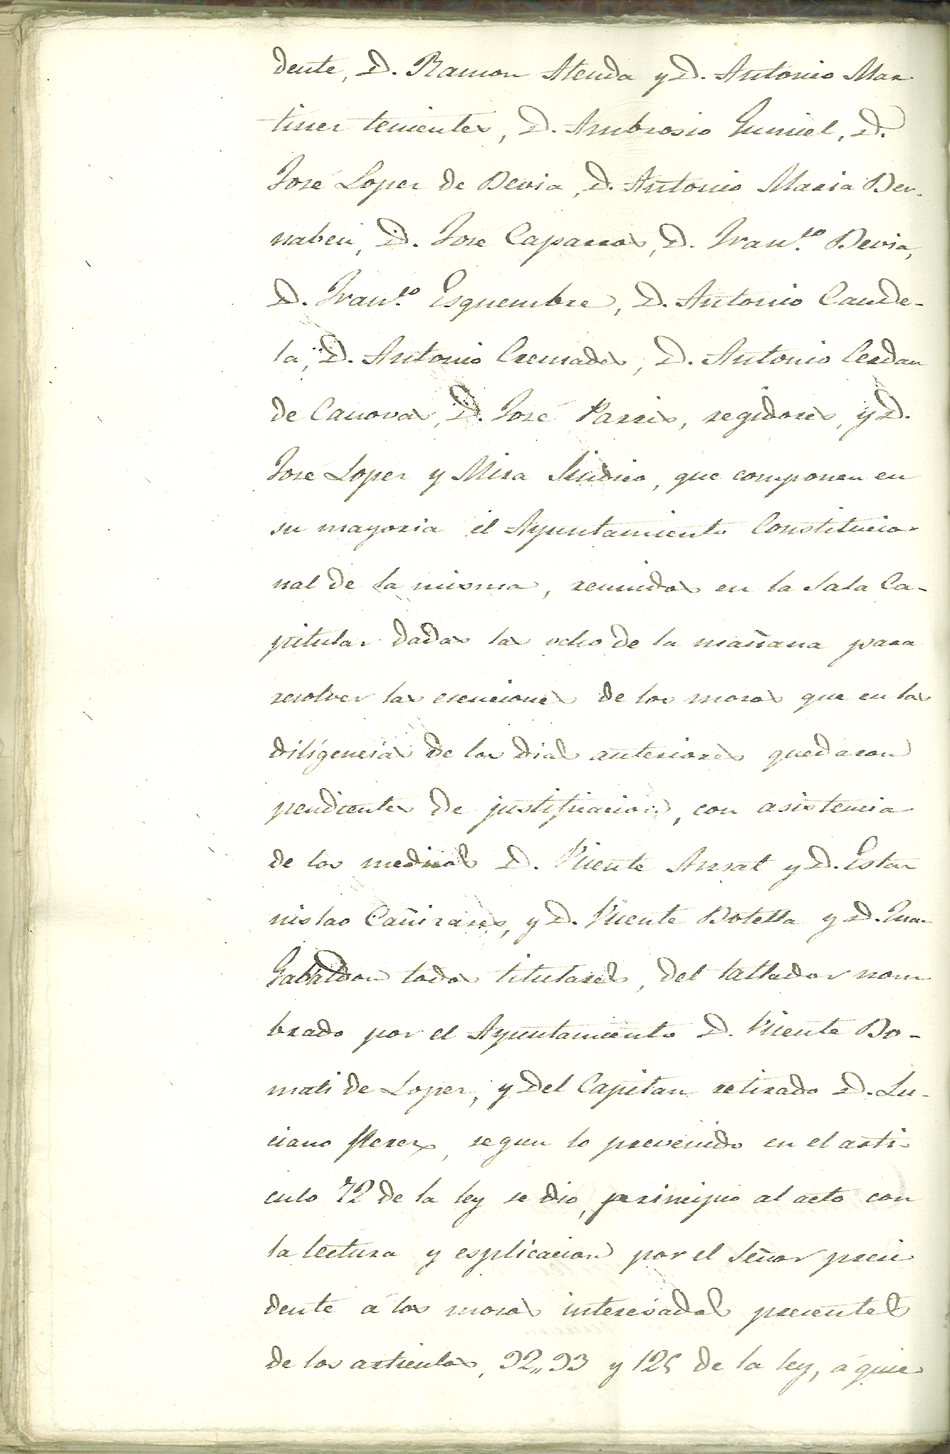 dente, D. Ramon Atenda y D. Antonio Mar
tinez tenientes, D. Ambrosio Gumiel, D.
José Lopez de Devia, D. Antonio Maria Ber-
nabeu, D. José Caparros, D. Fran.co Devia,
D. Fran.co Esquembre, D. Antonio Cande-
la, D. Antonio Cremades, D. Antonio Cerdan
de Canovas, D. José Parres, regidores, y D.
José Lopez y Mira Sindico, que componen en
su mayoria el Ayuntamiento Constitucio
nal de la misma, reunidos en la Sala Ca-
pitular dadas las ocho de la mañana para
resolver las esenciones de los mozos que en las
diligencias de los dias anteriores quedaron
pendientes de justificacion, con asistencia
de los medicos D. Vicente Ansat y D. Estar
nislao Cañizares, y D. Vicente Botella y D. Juan
Gabaldon todos titulares, del tallador nom
brado por el Ayuntamiento D. Vicente Bo-
mati de Lopez, y del Capitan retirado D. Lu-
ciano Perez, segun lo prevenido en el arti
culo 72 de la ley se dio, principio al acto con
la lectura y esplicacion por el Señor preci
dente á los mozos interesados precentes
de los articulos, 92,, 93 y 125 de la ley, á quie